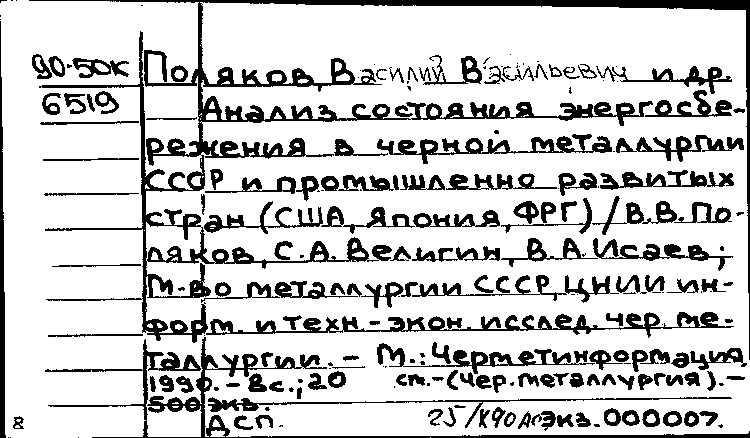 90-50К Поляков, Василий Васильевич и др.
6519 Анализ состояния энергосбе-
режения в черной металлургии
СССР и промышленно развитых
стран (США, Япония, ФРГ) / В.В. По-
ляков, С.А. Велигин, В.А. Исаев;
М-во металлургии СССР, ЦНИИ ин-
форм. и техн.-экон. исслед. чер. ме-
таллургии. – М.: Черметинформация,
1990. – 8 с.; 20 см. – (Чер. металлургия). –
500 экз.
8 ДСП. 25/X90 экз. 000007.